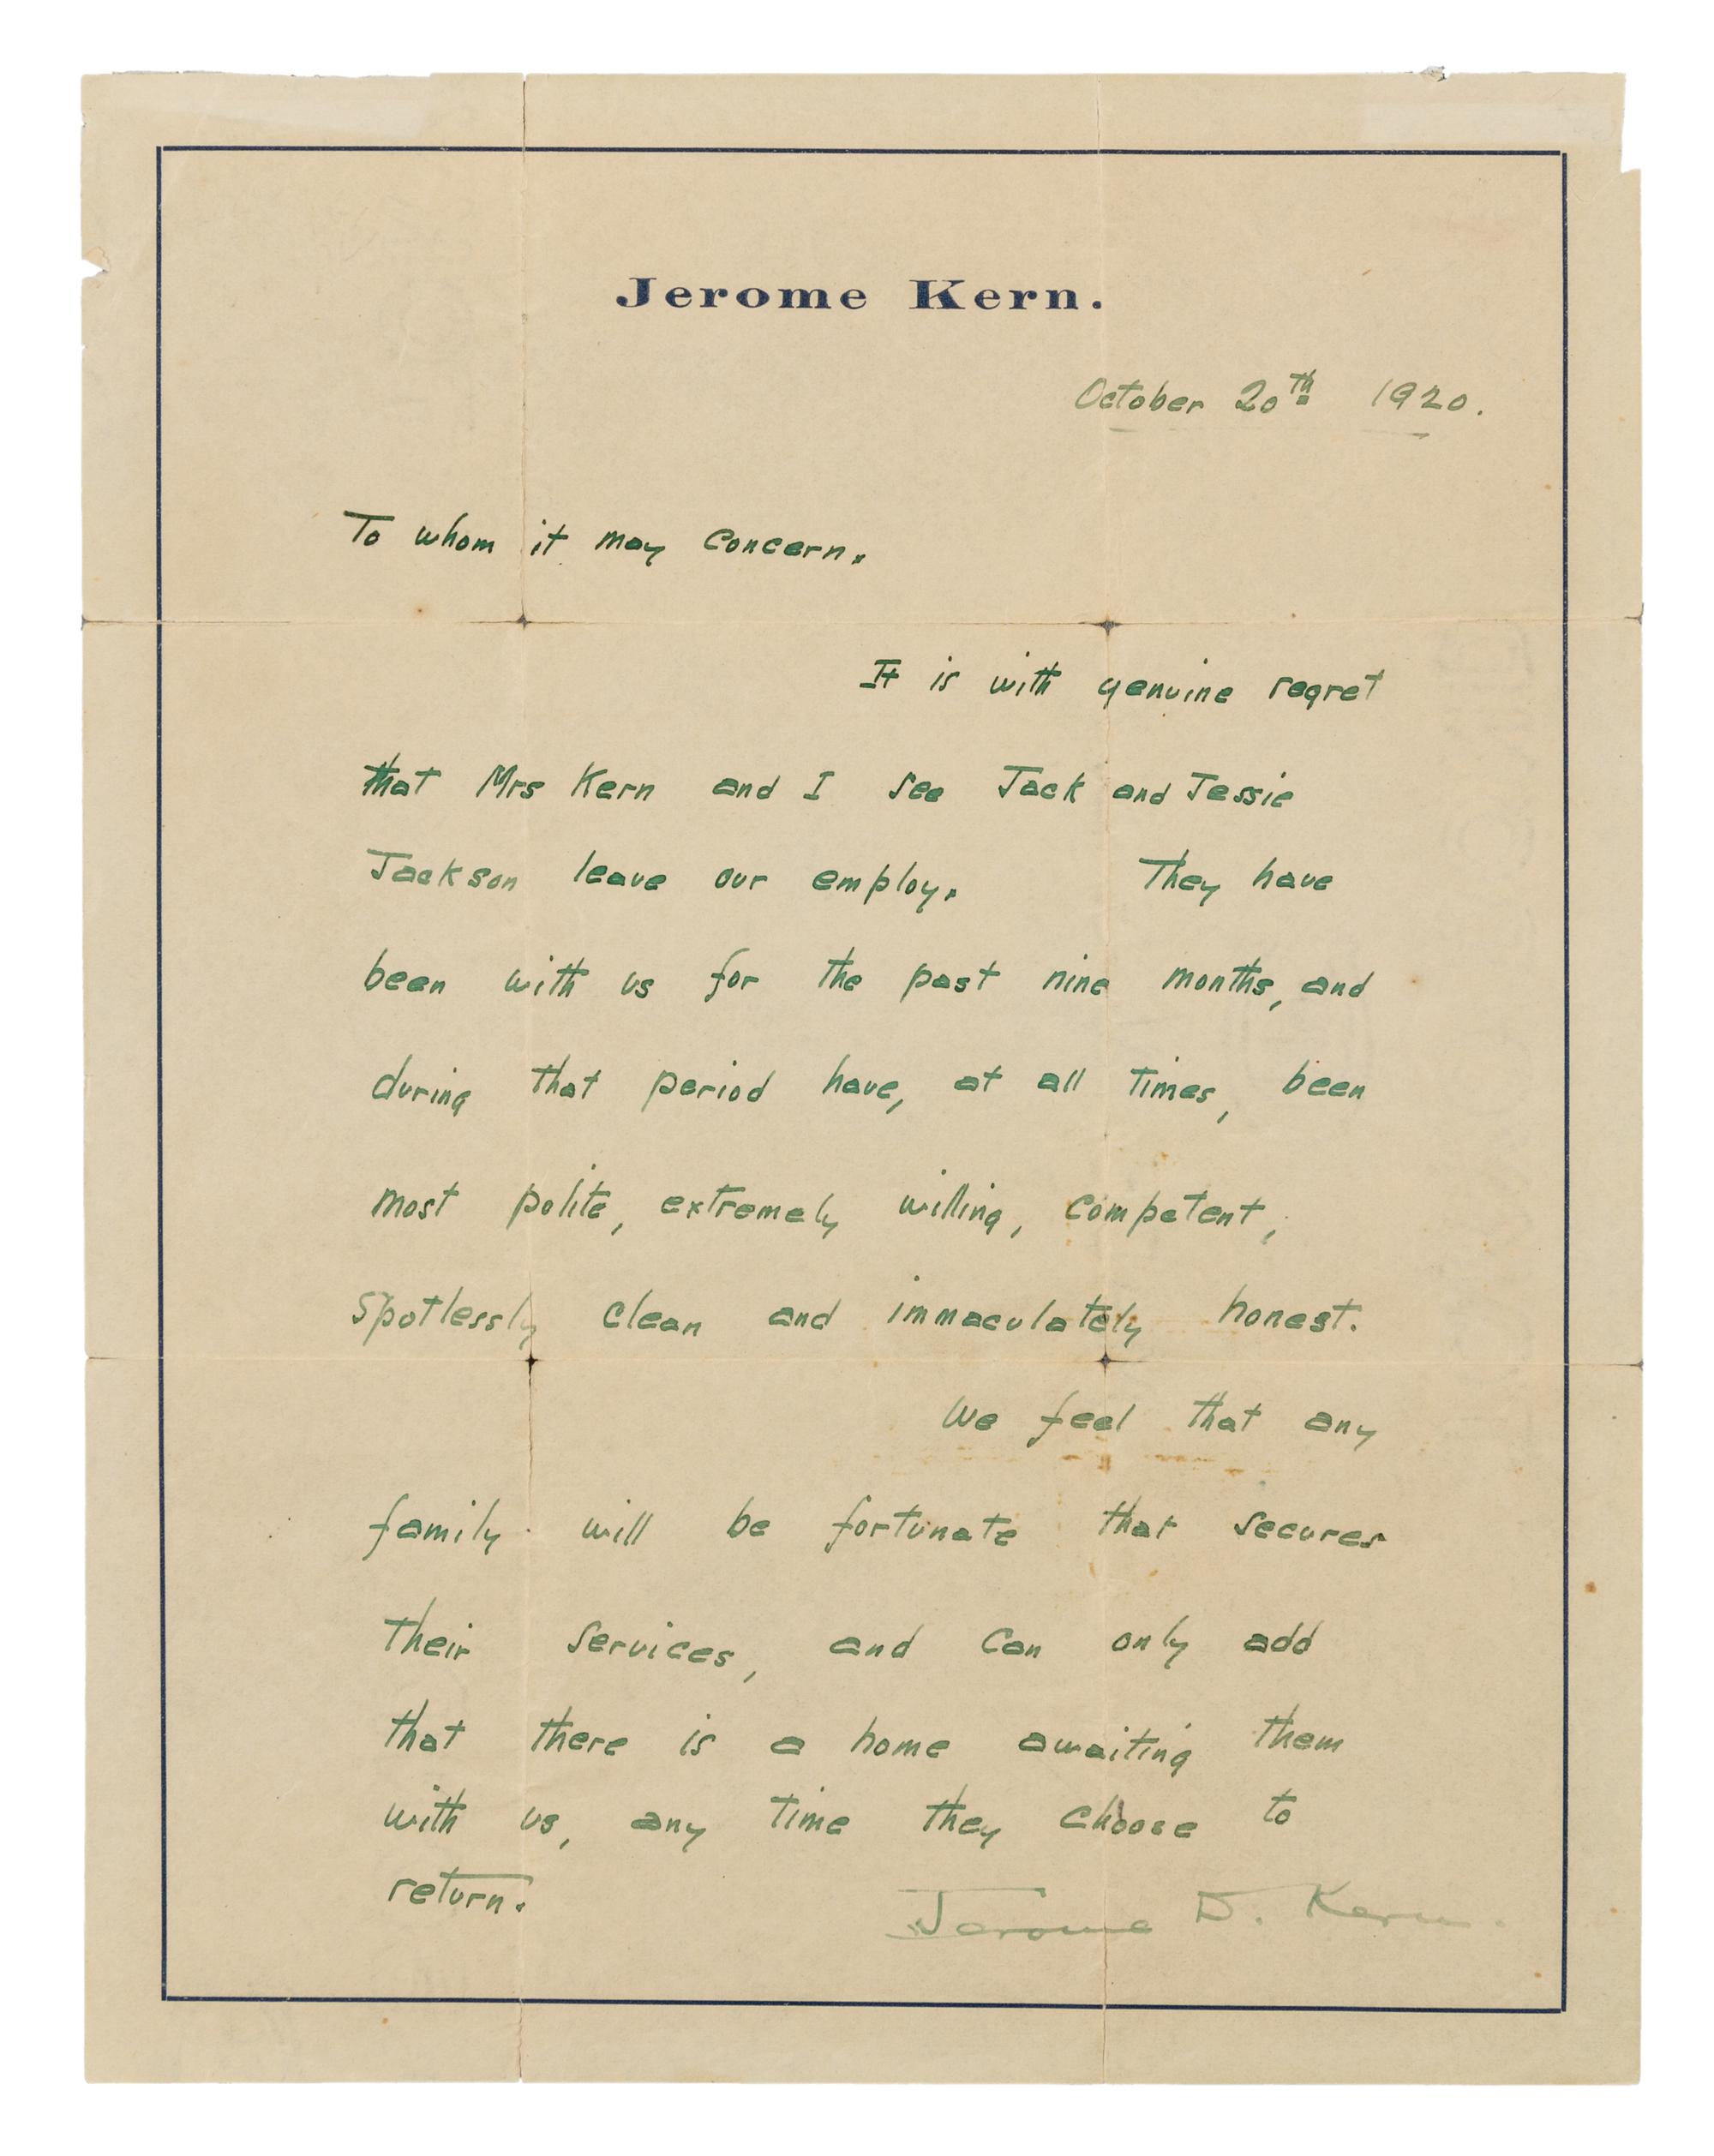 Jerome Kern.
October 20th 1920.
To whom it may concern.
It is with genuine regret
that Mrs Kern and I see Jack and Jessie
Jackson leave our employ. They have
been with us for the past nine months, and
during that period have, at all times, been
most polite, extremely willing, competent,
spotlessly clean and immaculately honest.
We feel that any
family will be fortunate that secures
their services, and can only add
that there is a home awaiting them
with us, any time they choose to
return.
Jerome D. Kern.